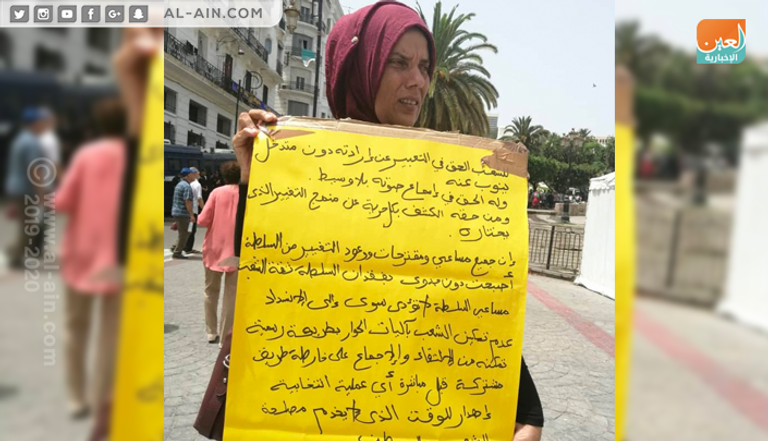 AL-AIN.COM
العين
الإخبارية
© al-ain.com
2019 - 2020
للشعب الحق في التعبير عن إرادته دون متدخل
ينوب عنه
وله الحق في إسماع صوته بلا وسيط.
ومن حقه الكشف بكل حرية عن منهج التغيير الذي
يختاره.
إن جميع مساعي ومقترحات ووعود التغيير من السلطة
أصبحت دون جدوى بفقدان السلطة ثقة الشعب
مساعي السلطة لا تؤدي سوى إلى الإنسداد
عدم تمكين الشعب بآليات الحوار بطريقة رسمية
تمكنه من الإلتقاء والإجماع على خارطة طريق
مشتركة قبل مباشرة أي عملية انتخابية
إهدار للوقت الذي لا يخدم مصلحة